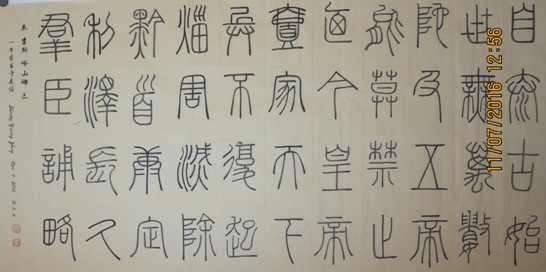 自泰古始
世無萬數
陀及五帝
能莫禁止
廼今皇帝
壹家天下
兵不復起
災害滅除
黔首康定
利澤長久
羣臣誦略
秦 李斯 嶧山碑 三
11/07/2016 12:56